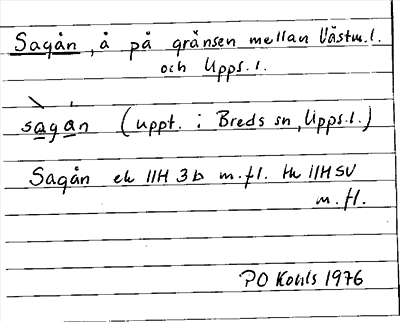 Sagån, å på gränsen mellan Västm.l.
och Upps.l.
sagån (uppt. i Breds sn, Upps.l.)
Sagån ek 11H 3b m.fl. tk 11H SV
m.fl.
PO Kohls 1976